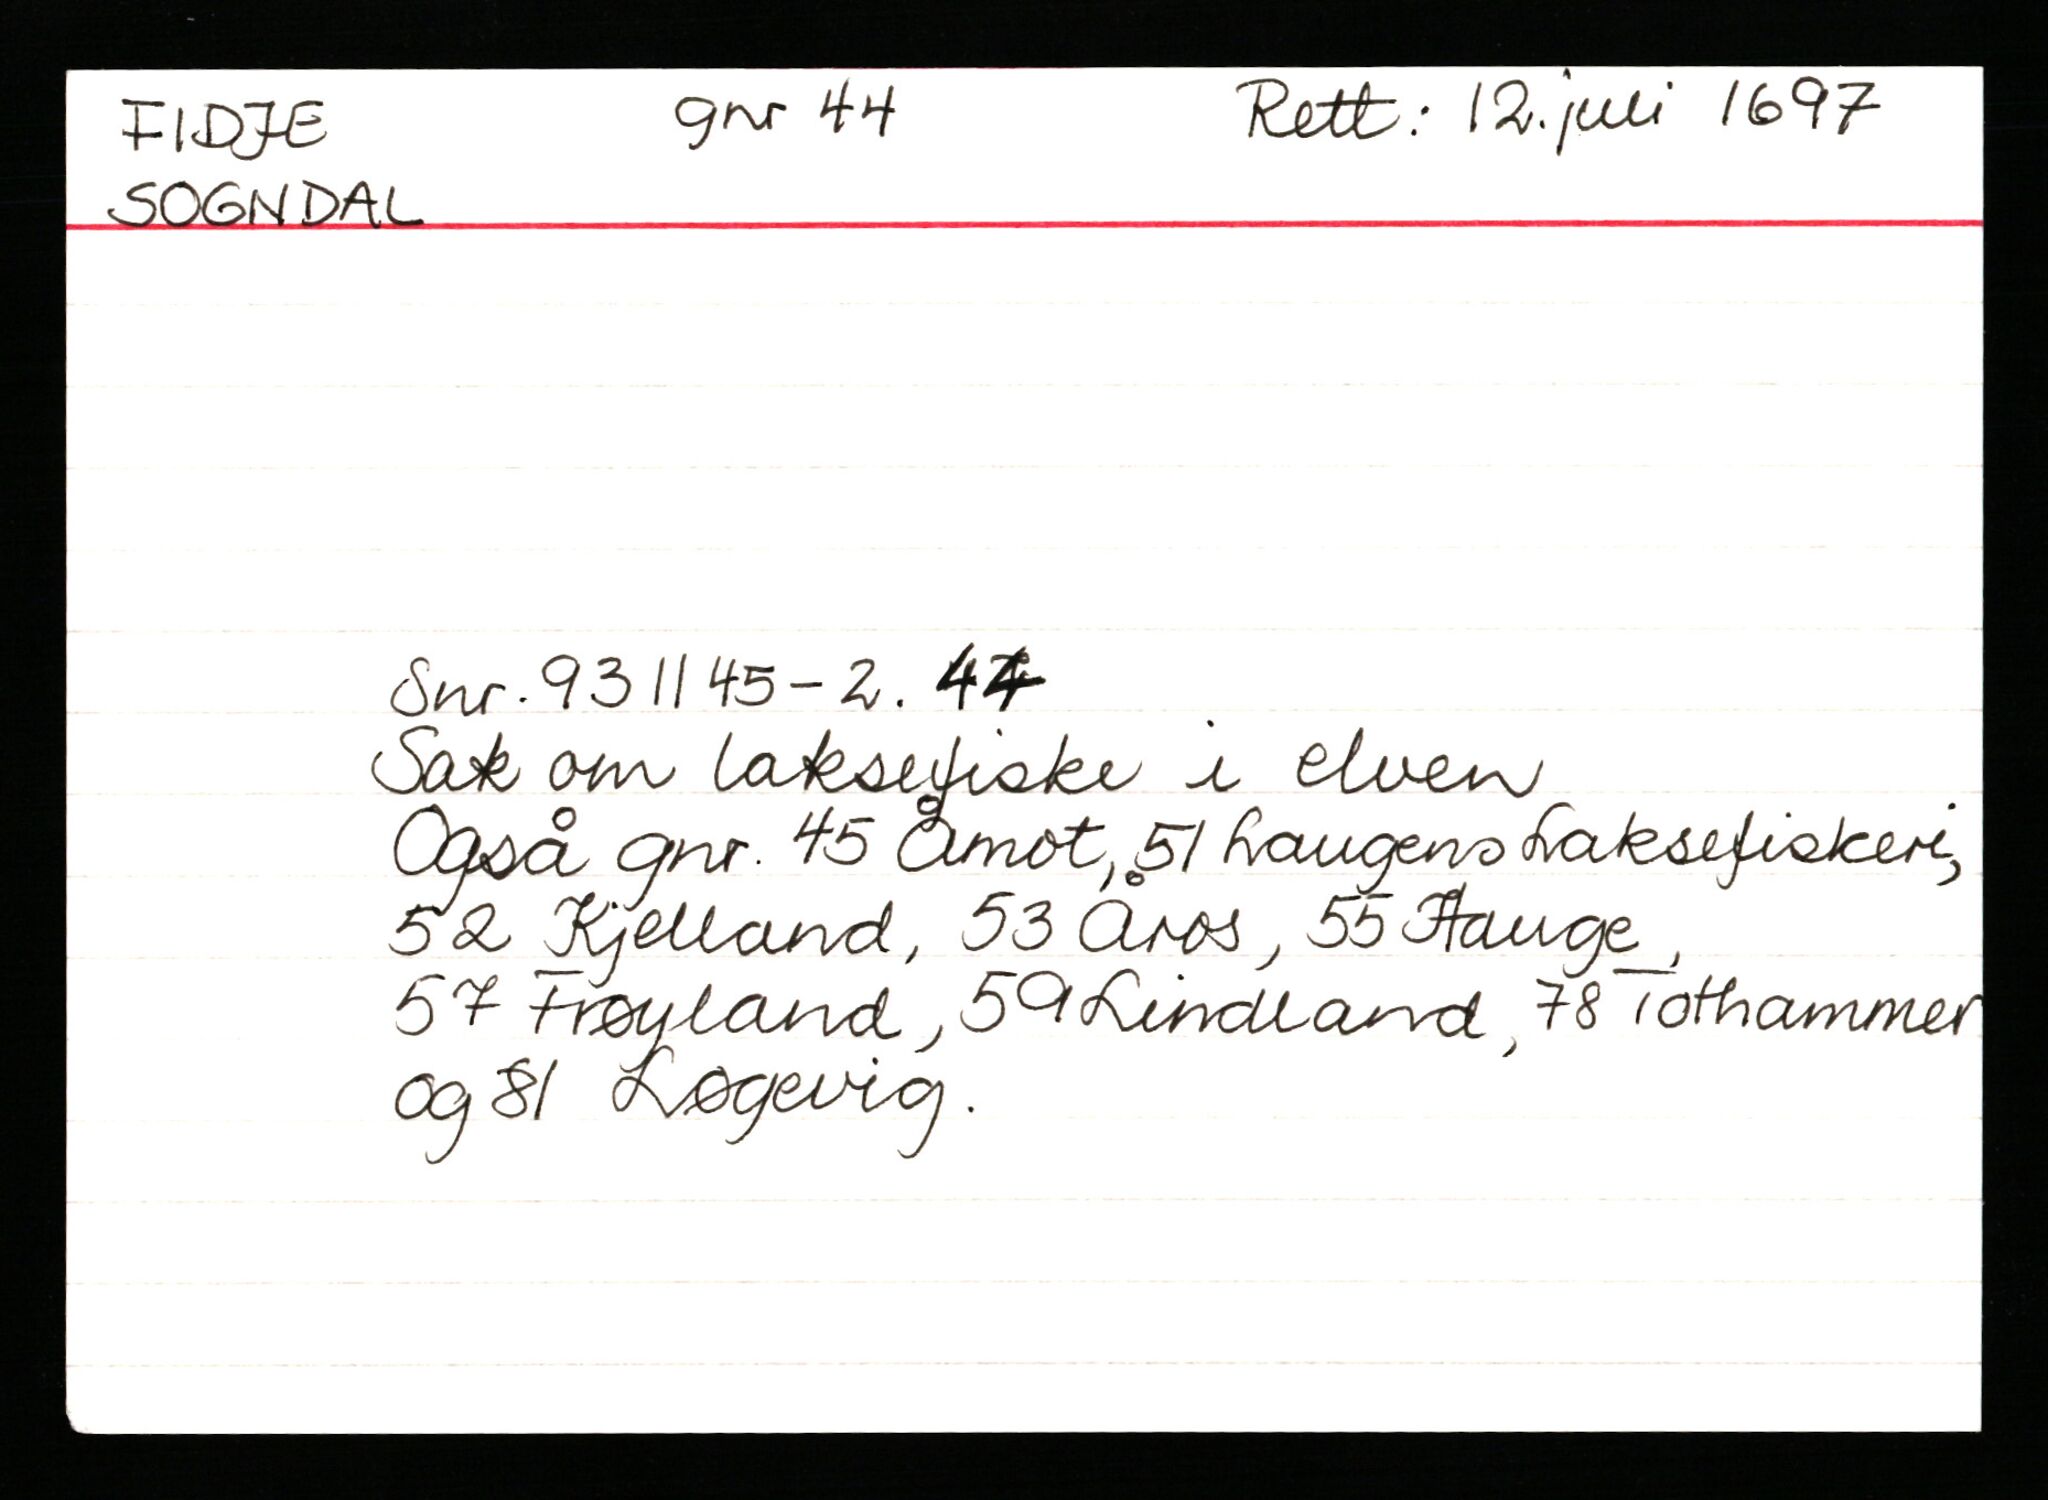 FIDJE gnr 44 Rett: 12. juli 1697
SOGNDAL
Snr. 931145-2. 44
Sak om laksefiske i elven
Også gnr. 45 Åmot, 51 Laugens Laksefiskeri,
52 Kjelland, 53 Åros, 55 Hauge,
57 Frøyland, 59 Lindland, 78 Tothammer
og 81 Løgevig.